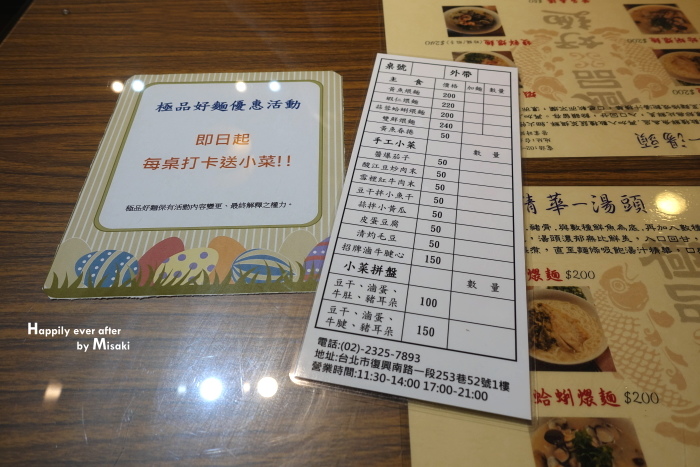 極品好麵優惠活動
即日起
每桌打卡送小菜!!
極品好麵保有活動內容變更、最終解釋之權力。
Happily ever after
by Misaki
桌號 外帶
主 食 價格 加麵 數量
黃魚煨麵 200
蝦仁煨麵 220
蒜蓉蛤蜊煨麵 200
雙鮮煨麵 240
黃魚春捲 50
手工小菜 數 量
醬爆茄子 50
酸江豆炒肉末 50
雪裡紅牛肉末 50
豆干拌小魚干 50
蒜拌小黃瓜 50
皮蛋豆腐 50
清灼毛豆 50
招牌滷牛腱心 150
小菜拼盤 數 量
豆干、滷蛋、
牛肚、豬耳朵 100
豆干、滷蛋、
牛腱、豬耳朵 150
電話:(02)-2325-7893
地址:台北市復興南路一段253巷52號1樓
營業時間:11:30-14:00 17:00-21:00
一湯頭
精華一湯頭
煨麵 $200
蛤蜊煨麵 $200